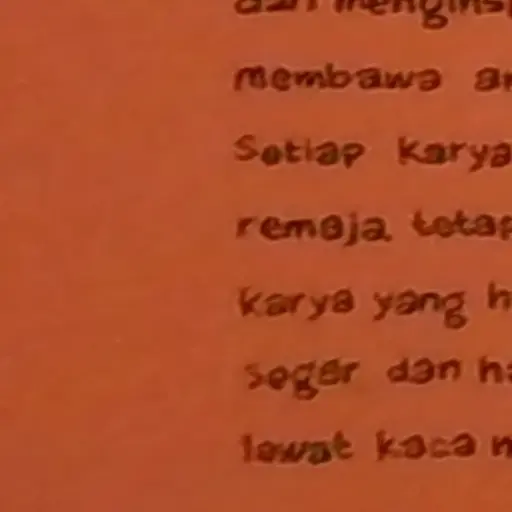 dan menginsp
membawa ar
Setiap karya
remaja tetap
karya yang h
segar dan ha
lewat kaca m